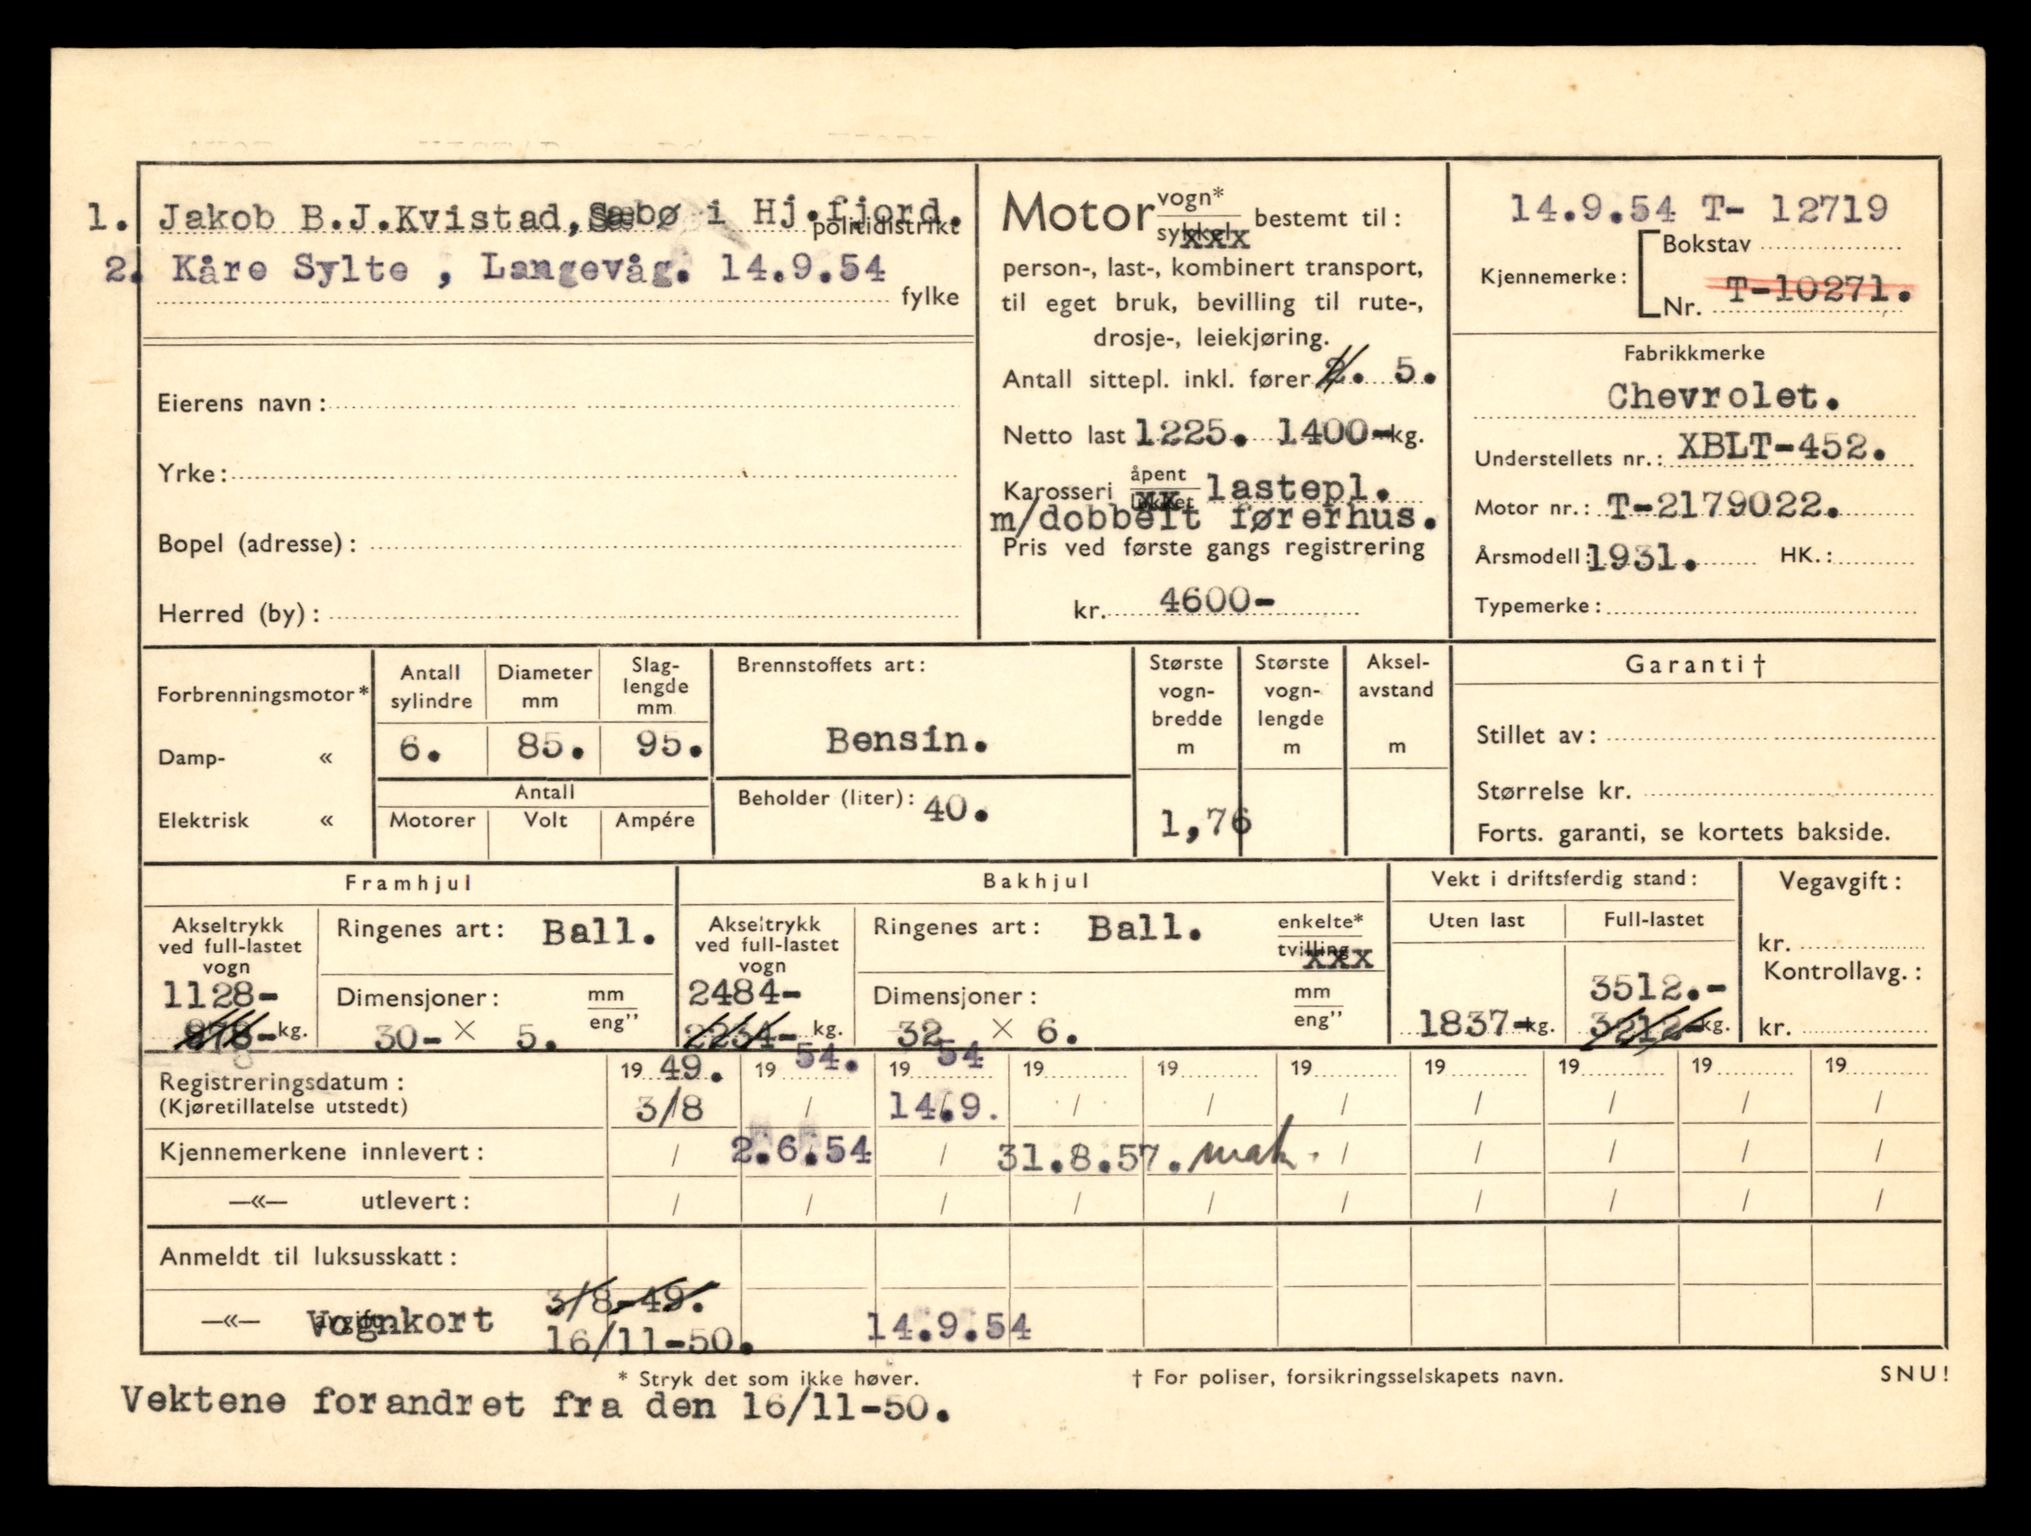 1. Jakob B.J.Kvistad, Sæbø i Hj.fjord.
politidistrikt
2. Kåre Sylte , Langevåg. 14.9.54
fylke
Eierens navn:
Yrke:
Bopel (adresse):
Herred (by):
Motor vogn* sykkel xxx bestemt til:
person-, last-, kombinert transport,
til eget bruk, bevilling til rute-,
drosje-, leiekjøring.
Antall sittepl. inkl. fører 2. 5.
Netto last 1225. 1400-kg.
Karosseri åpent lukket xx lastepl.
m/dobbelt førerhus.
Pris ved første gangs registrering
kr. 4600-
14.9.54 T- 12719
Kjennemerke: Bokstav
Nr. T-10271.
Fabrikkmerke
Chevrolet.
Understellets nr.: XBLT-452.
Motor nr.: T-2179022.
Årsmodell: 1931. HK.:
Typemerke:
Forbrenningsmotor*
Damp- «
Elektrisk «
Antall sylindre
Diameter mm
Slag-lengde mm
6. 85. 95.
Antall
Motorer Volt Ampére
Brennstoffets art:
Bensin.
Beholder (liter): 40.
Største vogn-bredde m
Største vogn-lengde m
Aksel-avstand m
1,76
Garanti†
Stillet av:
Størrelse kr.
Forts. garanti, se kortets bakside.
Framhjul
Akseltrykk ved full-lastet vogn
1128-
878-kg.
Ringenes art: Ball.
Dimensjoner: mm eng"
30- × 5.
Bakhjul
Akseltrykk ved full-lastet vogn
2484-
2234-kg.
Ringenes art: Ball. enkelte* tvilling xxx
Dimensjoner: mm eng"
32 × 6.
Vekt i driftsferdig stand:
Uten last Full-lastet
3512.-
1837-kg. 3212-kg.
Vegavgift:
kr.
Kontrollavg.:
kr.
Registreringsdatum: 19 49. 19 54. 19 54 19 19 19 19 19 19 19
(Kjøretillatelse utstedt) 3/8 / 14.9. / / / / / / /
Kjennemerkene innlevert: / 2.6.54 / 31.8.57. mak. / / / / /
—«— utlevert: / / / / / / / / / /
Anmeldt til luksusskatt:
3/8-49.
—«— Vognkort
16/11-50. 14.9.54
* Stryk det som ikke høver. † For poliser, forsikringsselskapets navn. SNU!
Vektene forandret fra den 16/11-50.